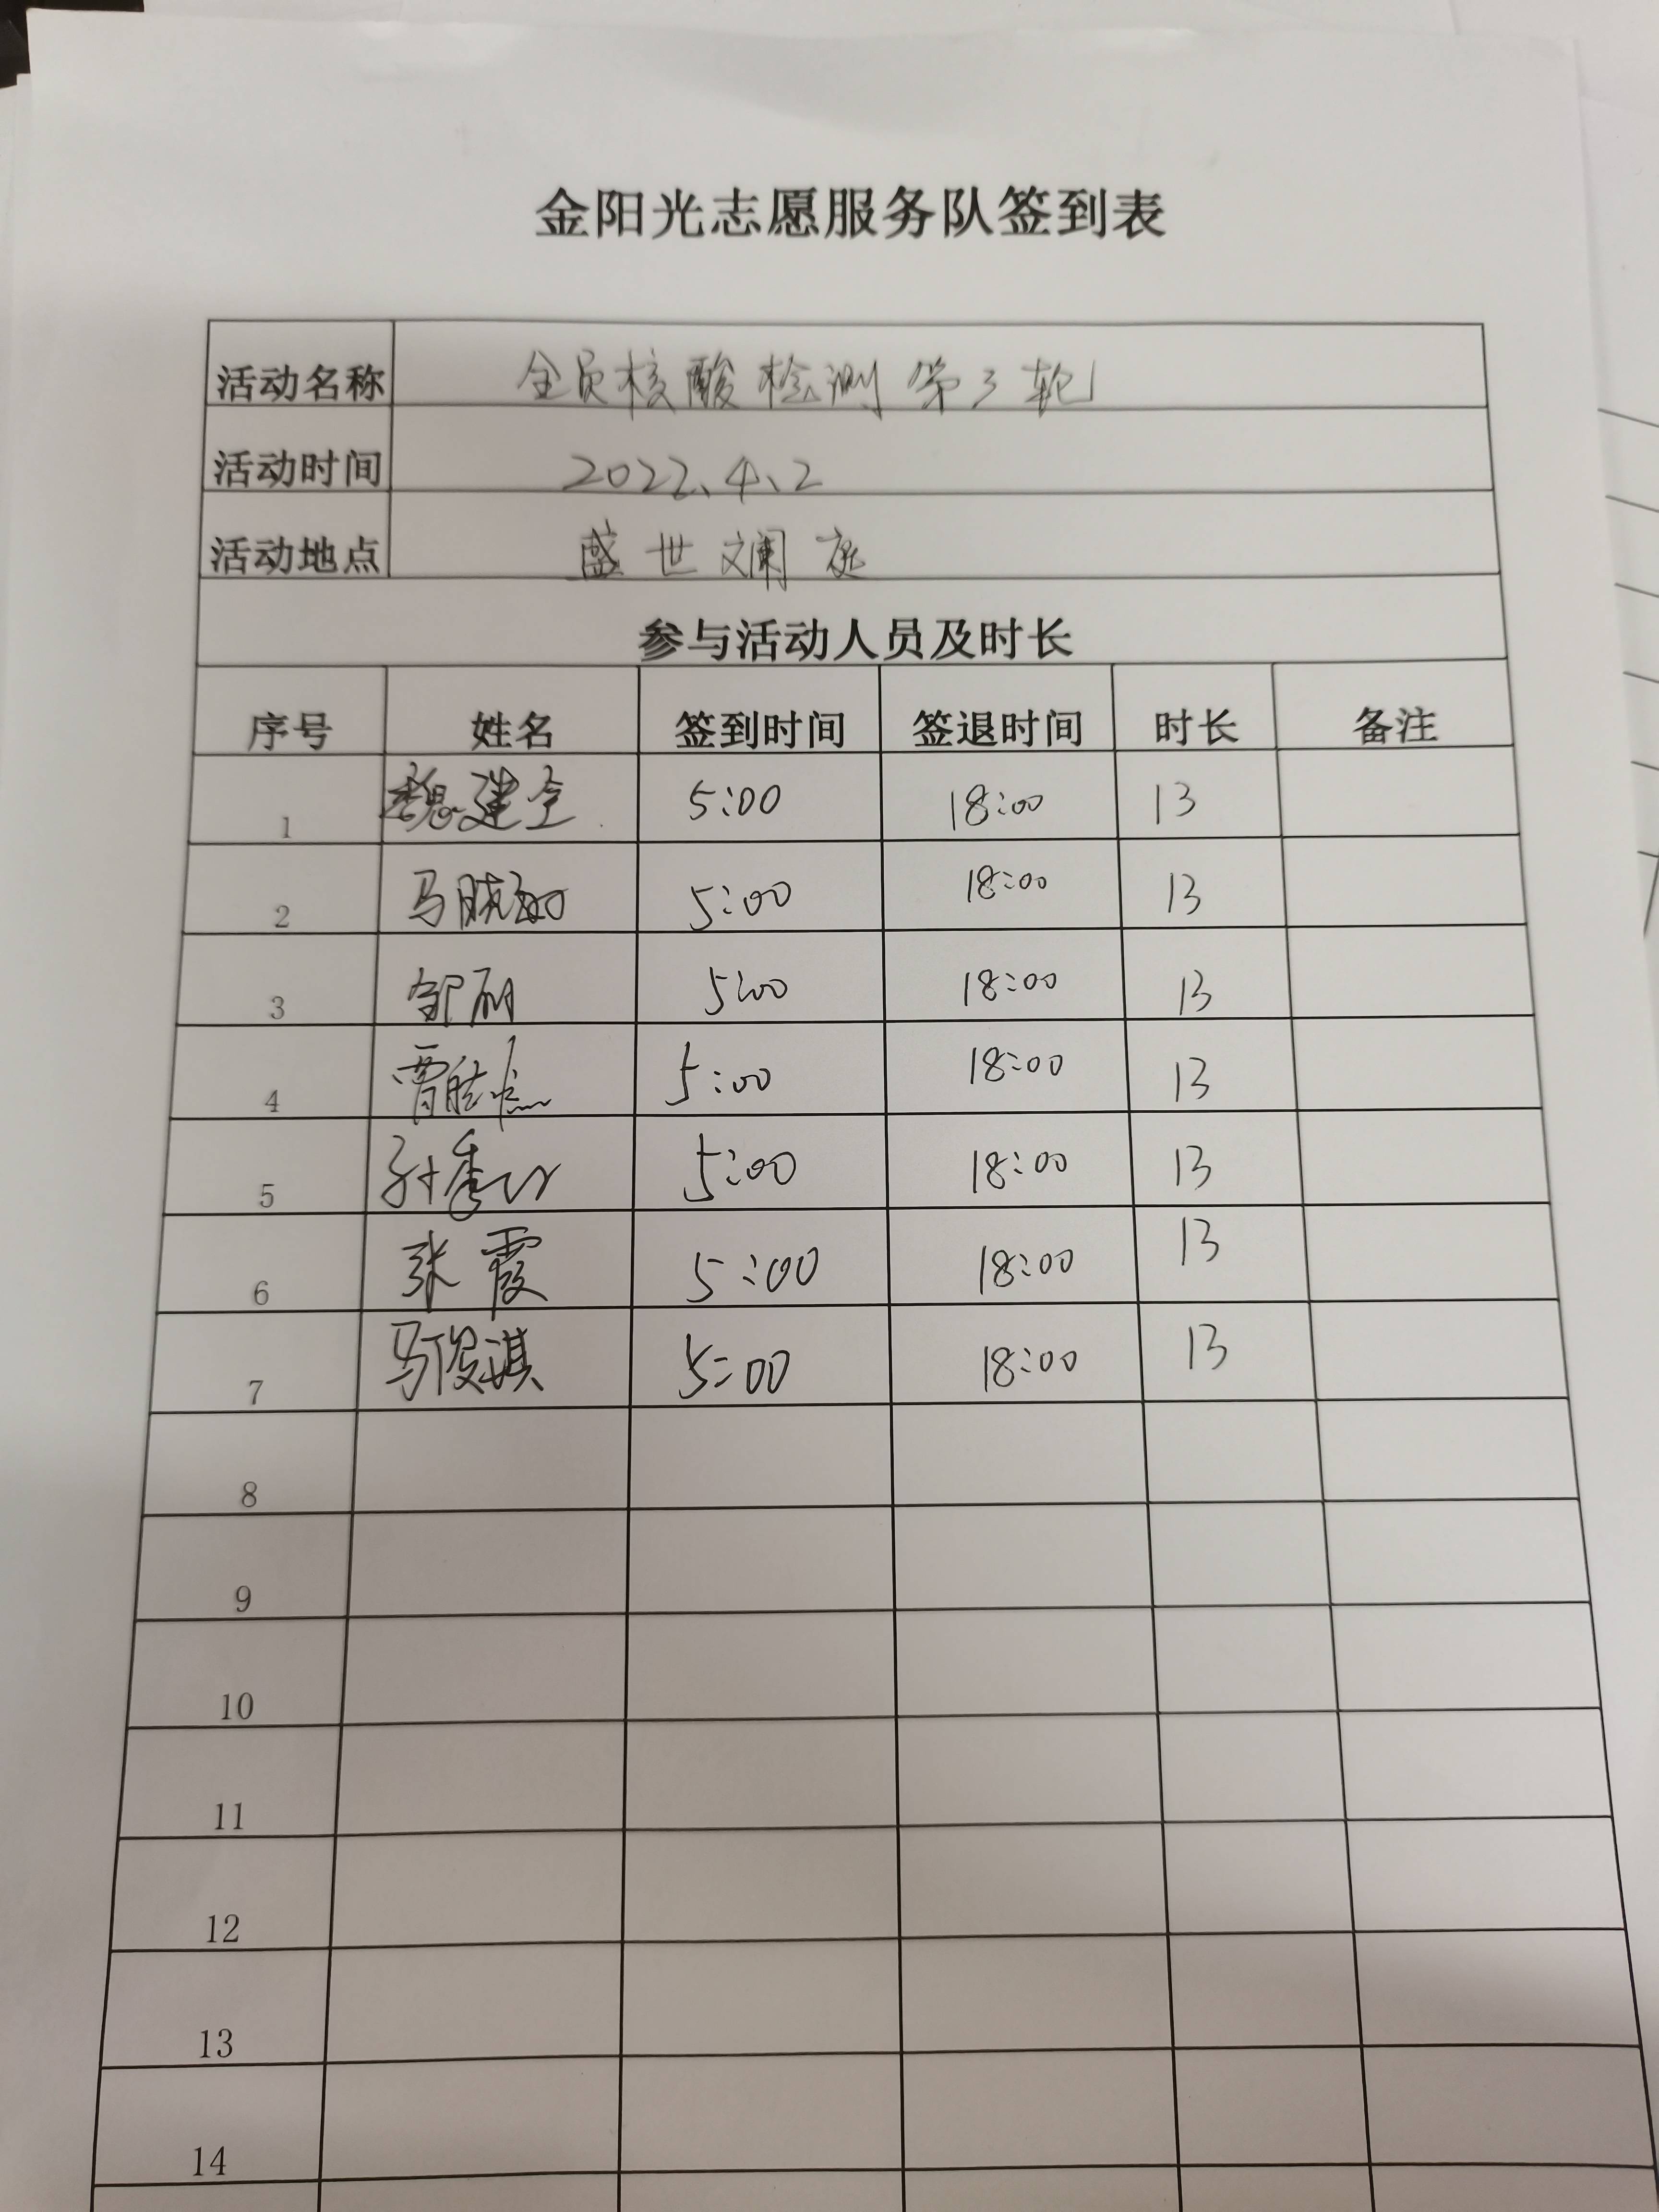 金阳光志愿服务队签到表
活动名称 全员核酸检测第3轮
活动时间 2022.4.2
活动地点 盛世斓庭
参与活动人员及时长
序号 姓名 签到时间 签退时间 时长 备注
1 魏建全 5:00 18:00 13
2 马晓 5:00 18:00 13
3 邹丽 5:00 18:00 13
4 贾 5:00 18:00 13
5 孙秀 5:00 18:00 13
6 张霞 5:00 18:00 13
7 马俊淇 5:00 18:00 13
8
9
10
11
12
13
14